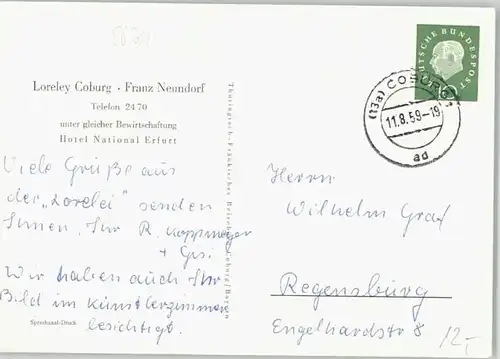 Loreley Coburg · Franz Neundorf
Telefon 2470
unter gleicher Bewirtschaftung
Hotel National Erfurt
Viele Grüße aus
der „Lorelei" senden
Ihnen, Ihr R.
+
Wir haben auch Ihr
Bild im Künstlerzimmer
besichtigt.
Spezhsaal-Druck
Thüringisch-Fränkischer Coburg/Bayern
DEUTSCHE BUNDESPOST
10
(13a) COBURG 1
11.8.59-19
ad
Herrn
Wilhelm Graf
Regensburg
Engelhardstr 8
12,-